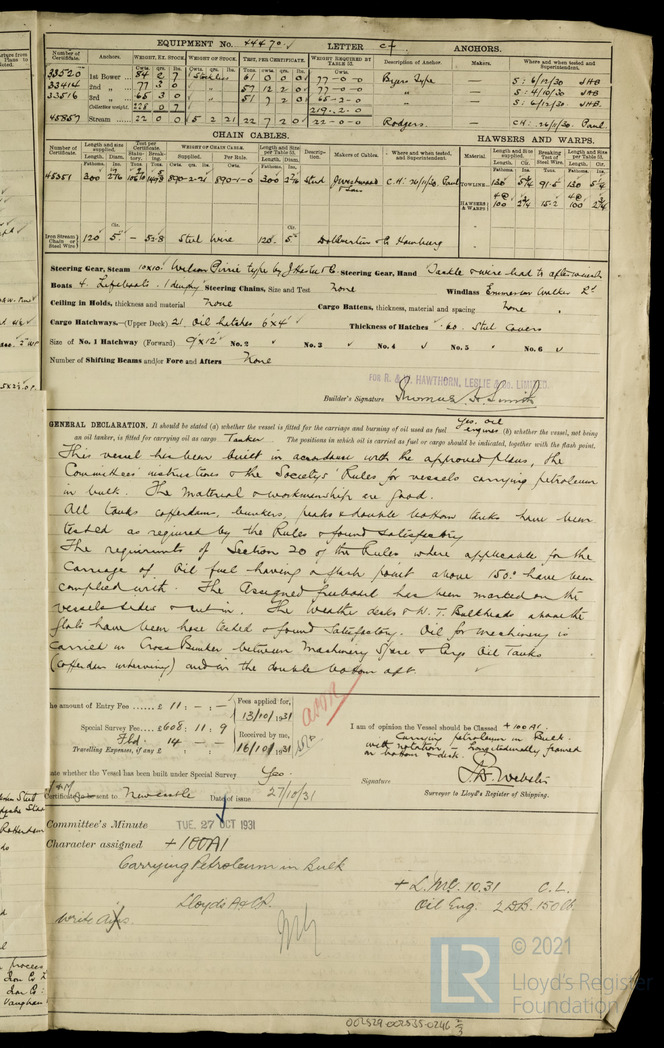 EQUIPMENT No. 44470 LETTER c† ANCHORS.
Number of Certificate. Anchors. WEIGHT, EX. STOCK. WEIGHT OF STOCK. TEST, PER CERTIFICATE. WEIGHT REQUIRED BY TABLE 31. Description of Anchor. Makers. Where and when tested and Superintendent.
Cwts. qrs. lbs.
33520 1st Bower 84 2 7 Stockless 61 0 0 0 77-0-0 Byers Type — S: 6/12/30 JHB
33414 2nd „ 77 3 0 57 12 2 0 77-0-0 „ — S: 4/10/30 JHB
33516 3rd „ 65 3 0 51 7 2 0 65-2-0 „ — S: 6/12/30 JHB.
Collective weight. 228 0 7 219.2.0
45857 Stream 22 0 0 5 2 21 22 7 2 0 22-0-0 Rodgers. — CH: 26/11/30 Paul
CHAIN CABLES. HAWSERS AND WARPS.
Number of Certificate. Length and size supplied. Test per Certificate. WEIGHT OF CHAIN CABLE. Length and size per Table 31. Description. Makers of Cables. Where and when tested, and Superintendent. Material. Length and Size supplied. Breaking Test of Steel Wire. Length and Size per Table 31.
Length. Diam. Statutory. Breaking. Supplied. Per Rule. Length. Diam.
45351 300 2 7/16 890-2-21 890-1-0 300 2 7/16 Stud C.H. 26/11/30. Paul TOWLINE 130 5¼ 91.5 130 5¼
HAWSERS & WARPS 4@ 100 2¾ 15.2 4@ 100 2¾
Iron Stream Chain or Steel Wire 120 5 — 53.8 Steel Wire 120 5 Hamburg
Steering Gear, Steam 10x10 Wilson Pirrie type by J Hastie & Co Steering Gear, Hand Tackle & wire lead to after winch
Boats 4. Lifeboats. 1 dinghy Steering Chains, Size and Test None Windlass Emerson Walker Ld
Ceiling in Holds, thickness and material None Cargo Battens, thickness, material and spacing None
Cargo Hatchways.—(Upper Deck) 21. Oil hatches 6'x4' Thickness of Hatches .60 Steel Covers
Size of No. 1 Hatchway (Forward) 9'x12' No. 2 No. 3 No. 4 No. 5 No. 6
Number of Shifting Beams and/or Fore and Afters None
FOR R. & W. HAWTHORN, LESLIE & Co. LIMITED.
Builder's Signature Thomas H Smith
GENERAL DECLARATION. It should be stated (a) whether the vessel is fitted for the carriage and burning of oil used as fuel Yes. oil engines. (b) whether the vessel, not being
an oil tanker, is fitted for carrying oil as cargo Tanker The positions in which oil is carried as fuel or cargo should be indicated, together with the flash point.
This vessel has been built in accordance with the approved plans, the
Committees' instructions & the Society's Rules for vessels carrying petroleum
in bulk. The material & workmanship are good.
All tanks cofferdams, bunkers, peaks & double bottom tanks have been
tested as required by the Rules & found satisfactory
The requirements of Section 20 of the Rules where applicable for the
Carriage of Oil fuel having a flash point above 150° have been
complied with. The Assigned freeboard has been marked on the
vessels sides & cut in. The Weather decks & W. T. Bulkheads above the
flats have been hose tested & found satisfactory. Oil for machinery is
Carried in Cross Bunker between Machinery Space & Cargo Oil Tanks
(cofferdam intervening) and in the double bottom aft.
The amount of Entry Fee £ 11 : - : - Fees applied for, 13/10/1931
Special Survey Fee £ 608 : 11 : 9 Received by me,
Fbd. 14 - - 16/10/1931
Travelling Expenses, if any £
I am of opinion the Vessel should be Classed +100A1.
Carrying petroleum in Bulk.
with notation, - Longitudinally framed
in bottom & deck.
State whether the Vessel has been built under Special Survey Yes.
Certificate sent to Newcastle Date of issue 27/10/31
Signature J.D. Webster
Surveyor to Lloyd's Register of Shipping.
Committee's Minute TUE. 27 OCT 1931
Character assigned +100A1
Carrying Petroleum in Bulk
+ L.M.C. 10.31 C.L.
Lloyds A&CP. Oil Eng. 2 D.B. 150 lb.
Write
© 2021
Lloyd's Register
Foundation
LR
002529-002535-0246 2/3